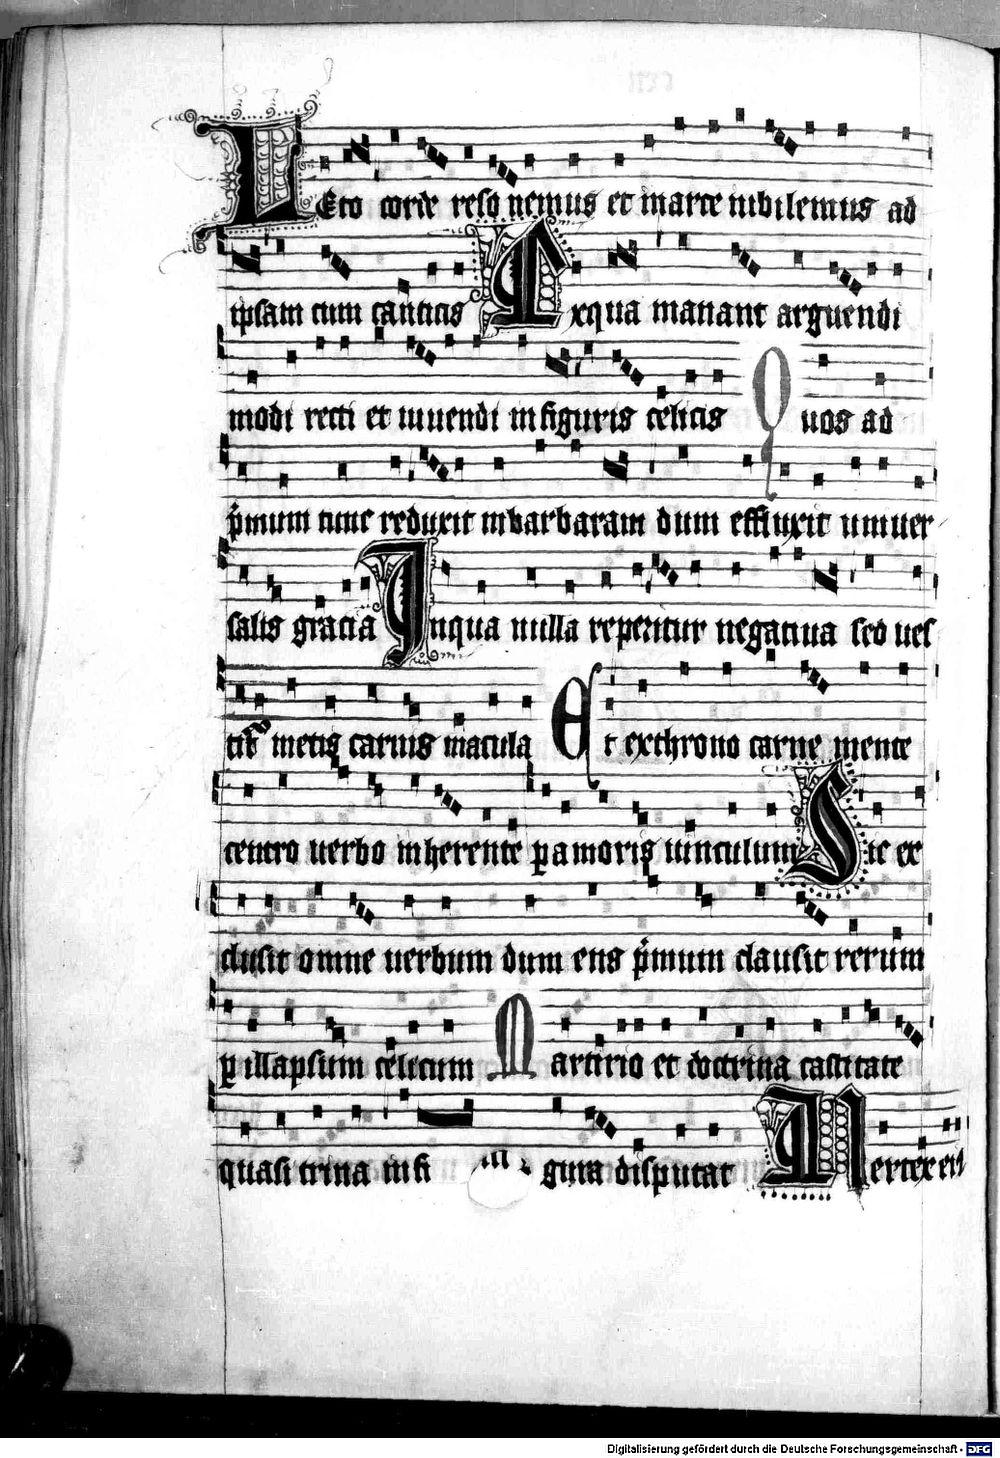 LEto corde resonemus et marte iubilemus ad
ipsam cum canticis Exqua manant arguendi
modi recti et iuuendi infiguris celicis Quos ad
p̄mum tunc reduxit inbarbaram dum effluxit uniuer
salis gracia Inqua nulla reperitur negatiua sed ues
tit̄ metis carius macula Et exthrono carne mente
centro uerbo inherente ꝑ amoris uinculum Sic ex
clusit omne uerbum dum ens p̄mum clausit rerum
ꝑ illapsum celicum Martirio et doctrina castitate
quasi trina infi gura disputat Vertex eii
Digitalisierung gefördert durch die Deutsche Forschungsgemeinschaft - DFG